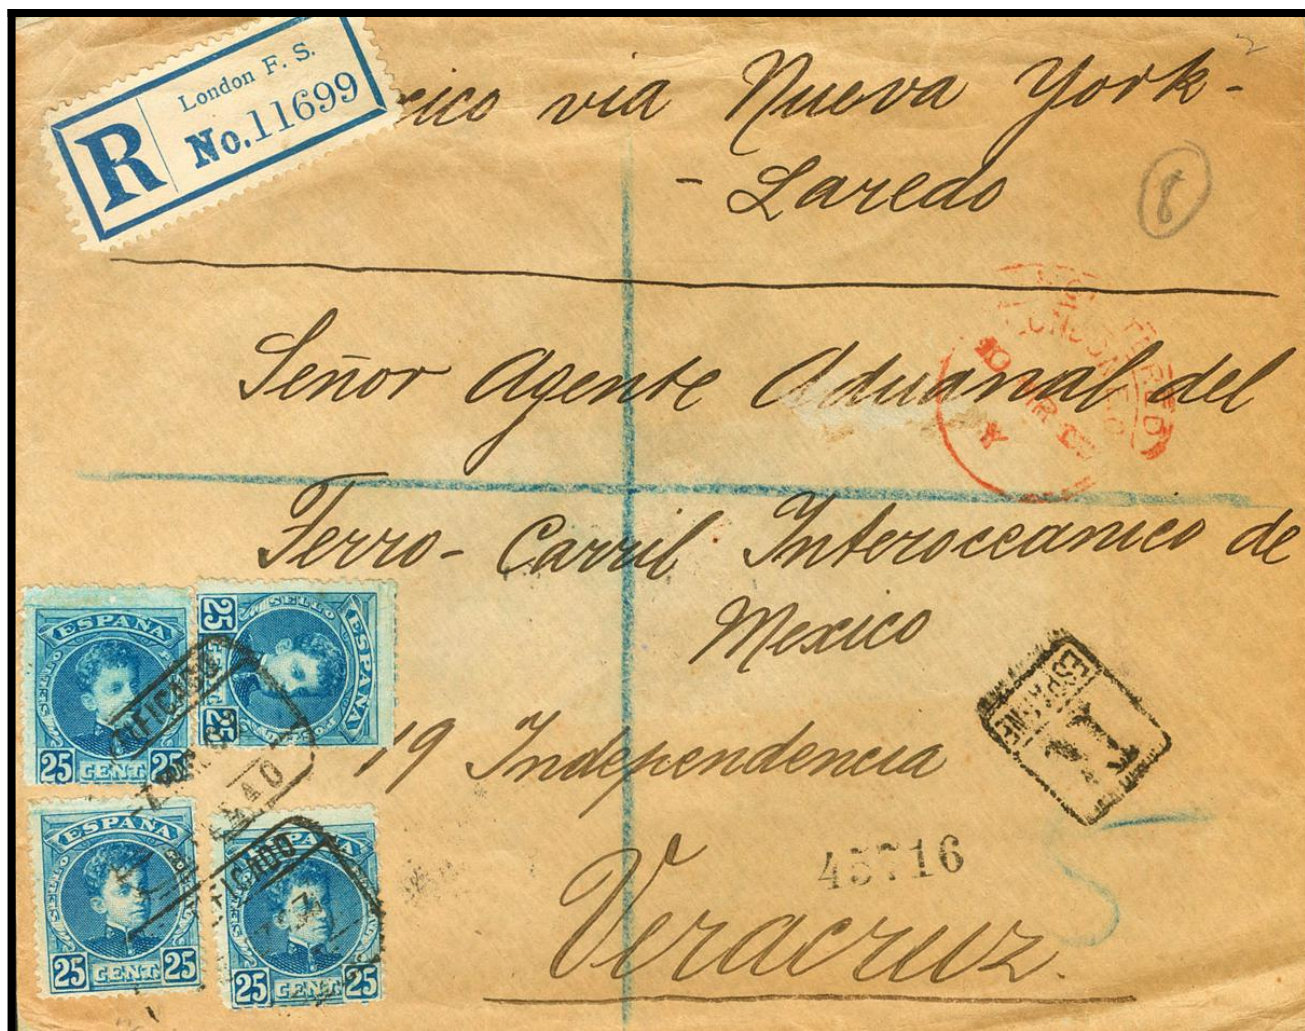 London F. S.
R No. 11699
xico via Nueva York-
- Laredo
8
Señor Agente Aduanal del
Ferro-Carril Interoceanico de
Mexico
19 Independencia
Veracruz
45716
ESPAÑA
25 CENT 25
SELLO
ESPAÑA
25 CENT 25
ESPAÑA
25 CENT 25
ESPAÑA
25 CENT 25
BILBAO